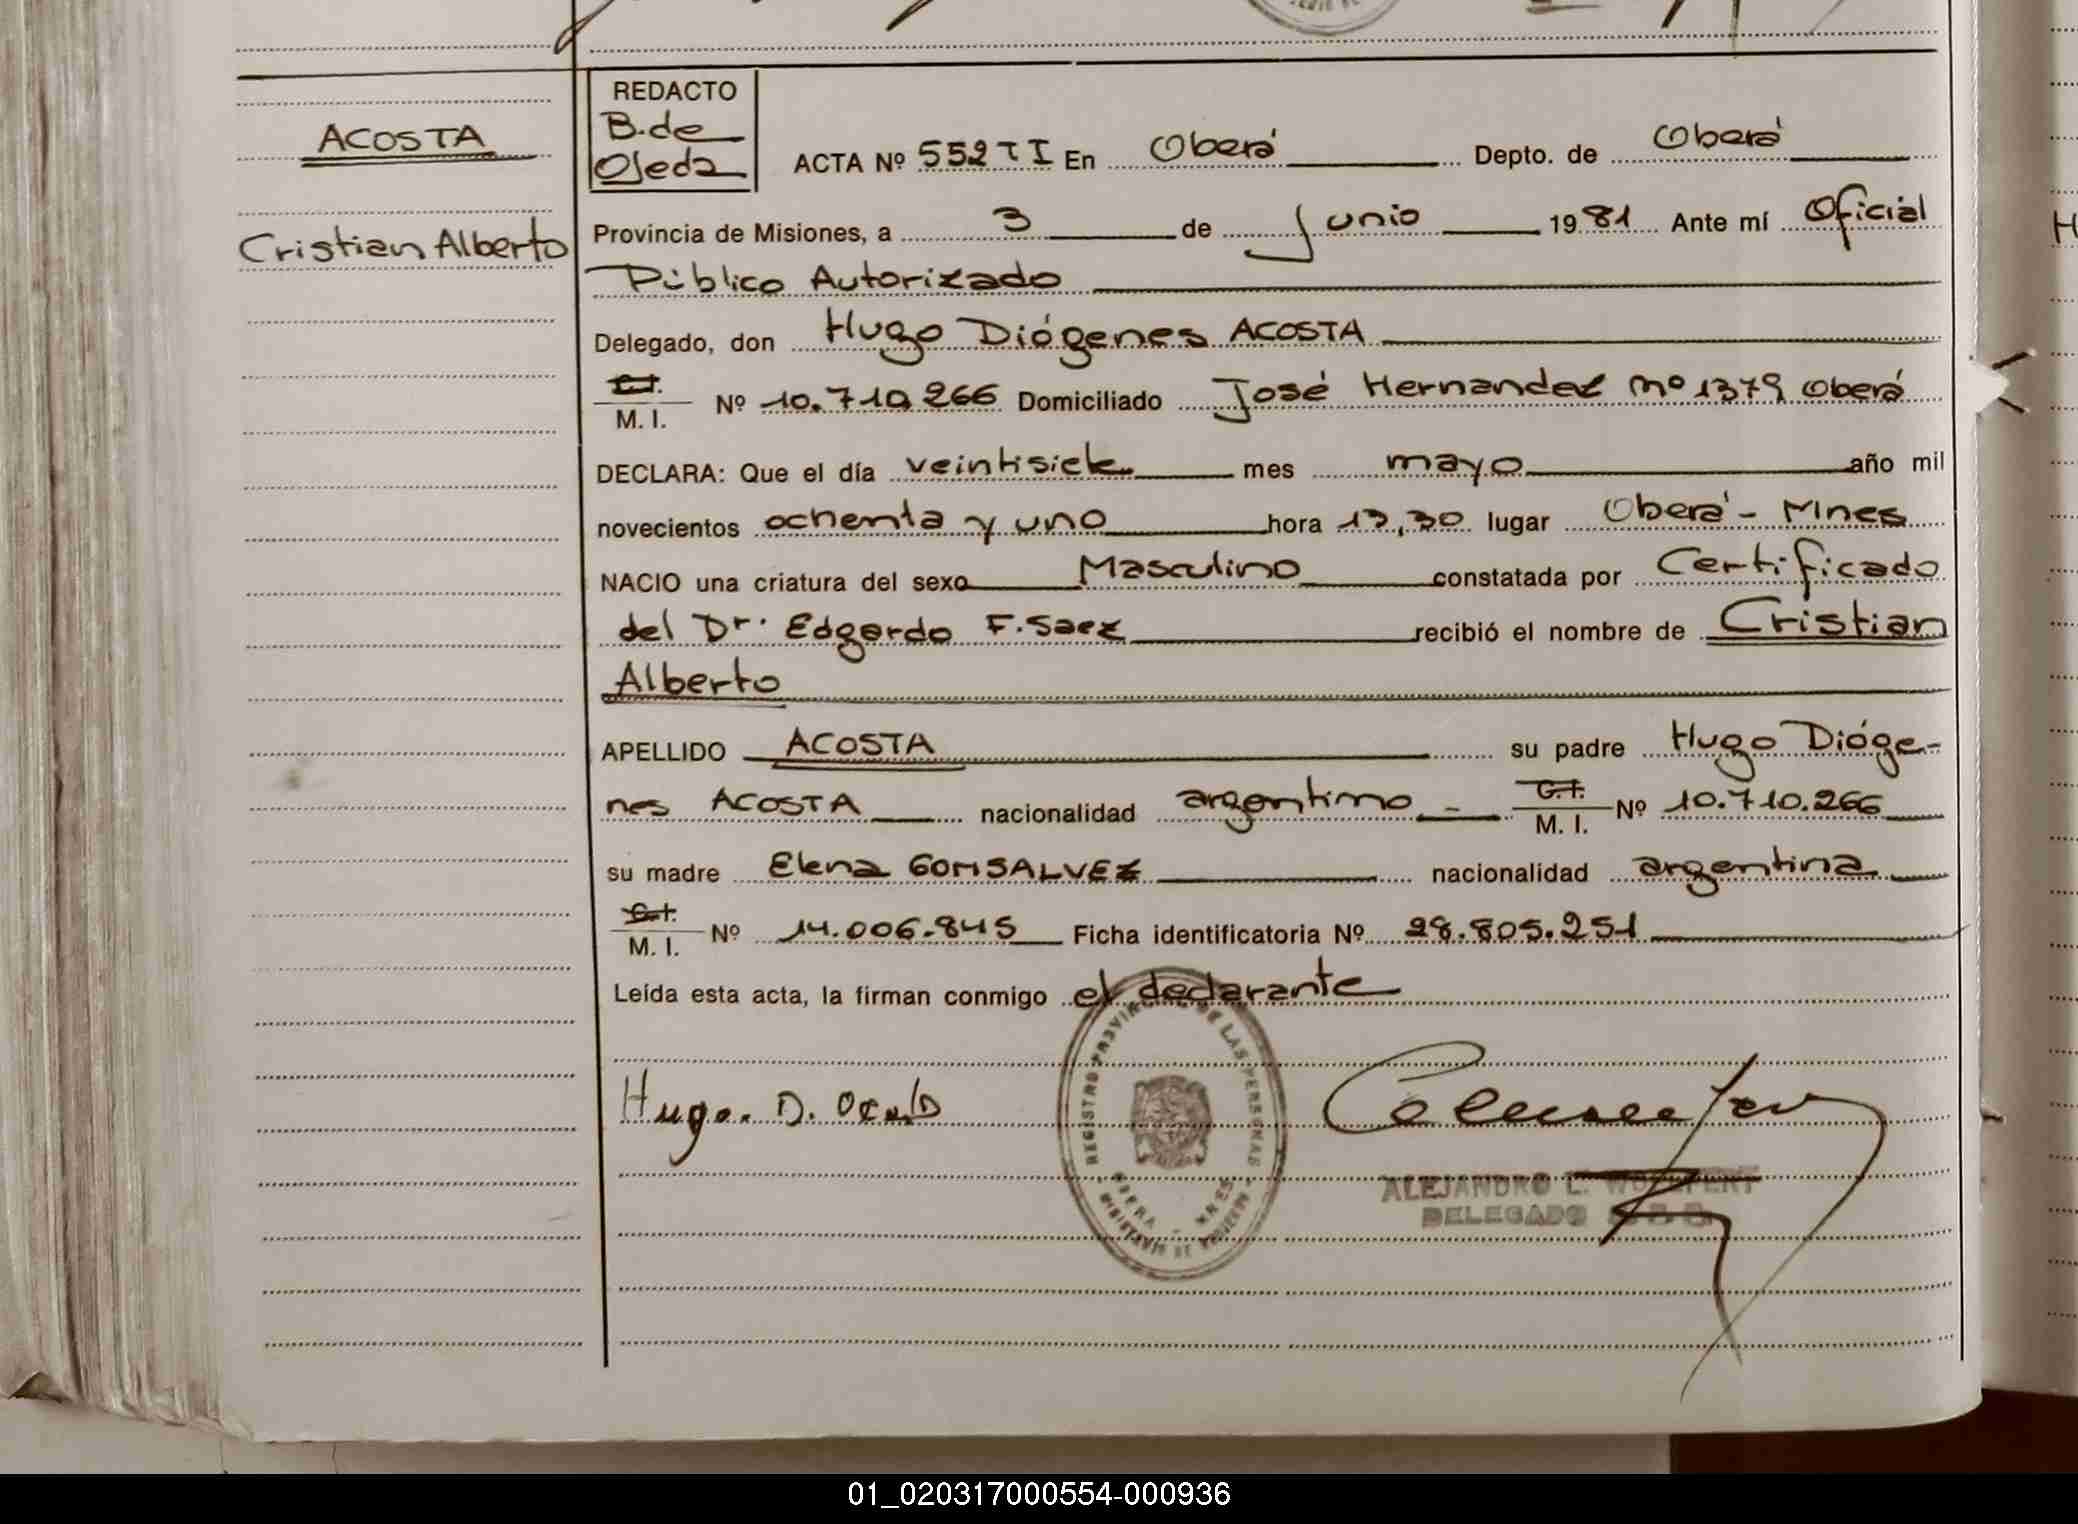 REDACTO
ACOSTA
B. de
Ojeda
ACTA Nº 552 T I En Oberá Depto. de Oberá
Cristian Alberto
Provincia de Misiones, a 3 de Junio 1981 Ante mí Oficial
Público Autorizado
Delegado, don Hugo Diógenes ACOSTA
C.I.
M. I. Nº 10.710.266 Domiciliado José Hernandez nº 1379 Oberá
DECLARA: Que el día veintisiete mes mayo año mil
novecientos ochenta y uno hora 13,30 lugar Oberá - Mnes
NACIO una criatura del sexo Masculino constatada por Certificado
del Dr. Edgardo F. Saez recibió el nombre de Cristian
Alberto
APELLIDO ACOSTA su padre Hugo Dióge-
nes ACOSTA nacionalidad argentino - C.I. M. I. Nº 10.710.266
su madre Elena GONSALVEZ nacionalidad argentina
C.I.
M. I. Nº 14.006.845 Ficha identificatoria Nº 28.805.251
Leída esta acta, la firman conmigo el declarante
REGISTRO PROVINCIAL DE LAS PERSONAS
OBERA - MNES
MINISTERIO DE
Hugo. D.
ALEJANDRO L.
DELEGADO
01_020317000554-000936